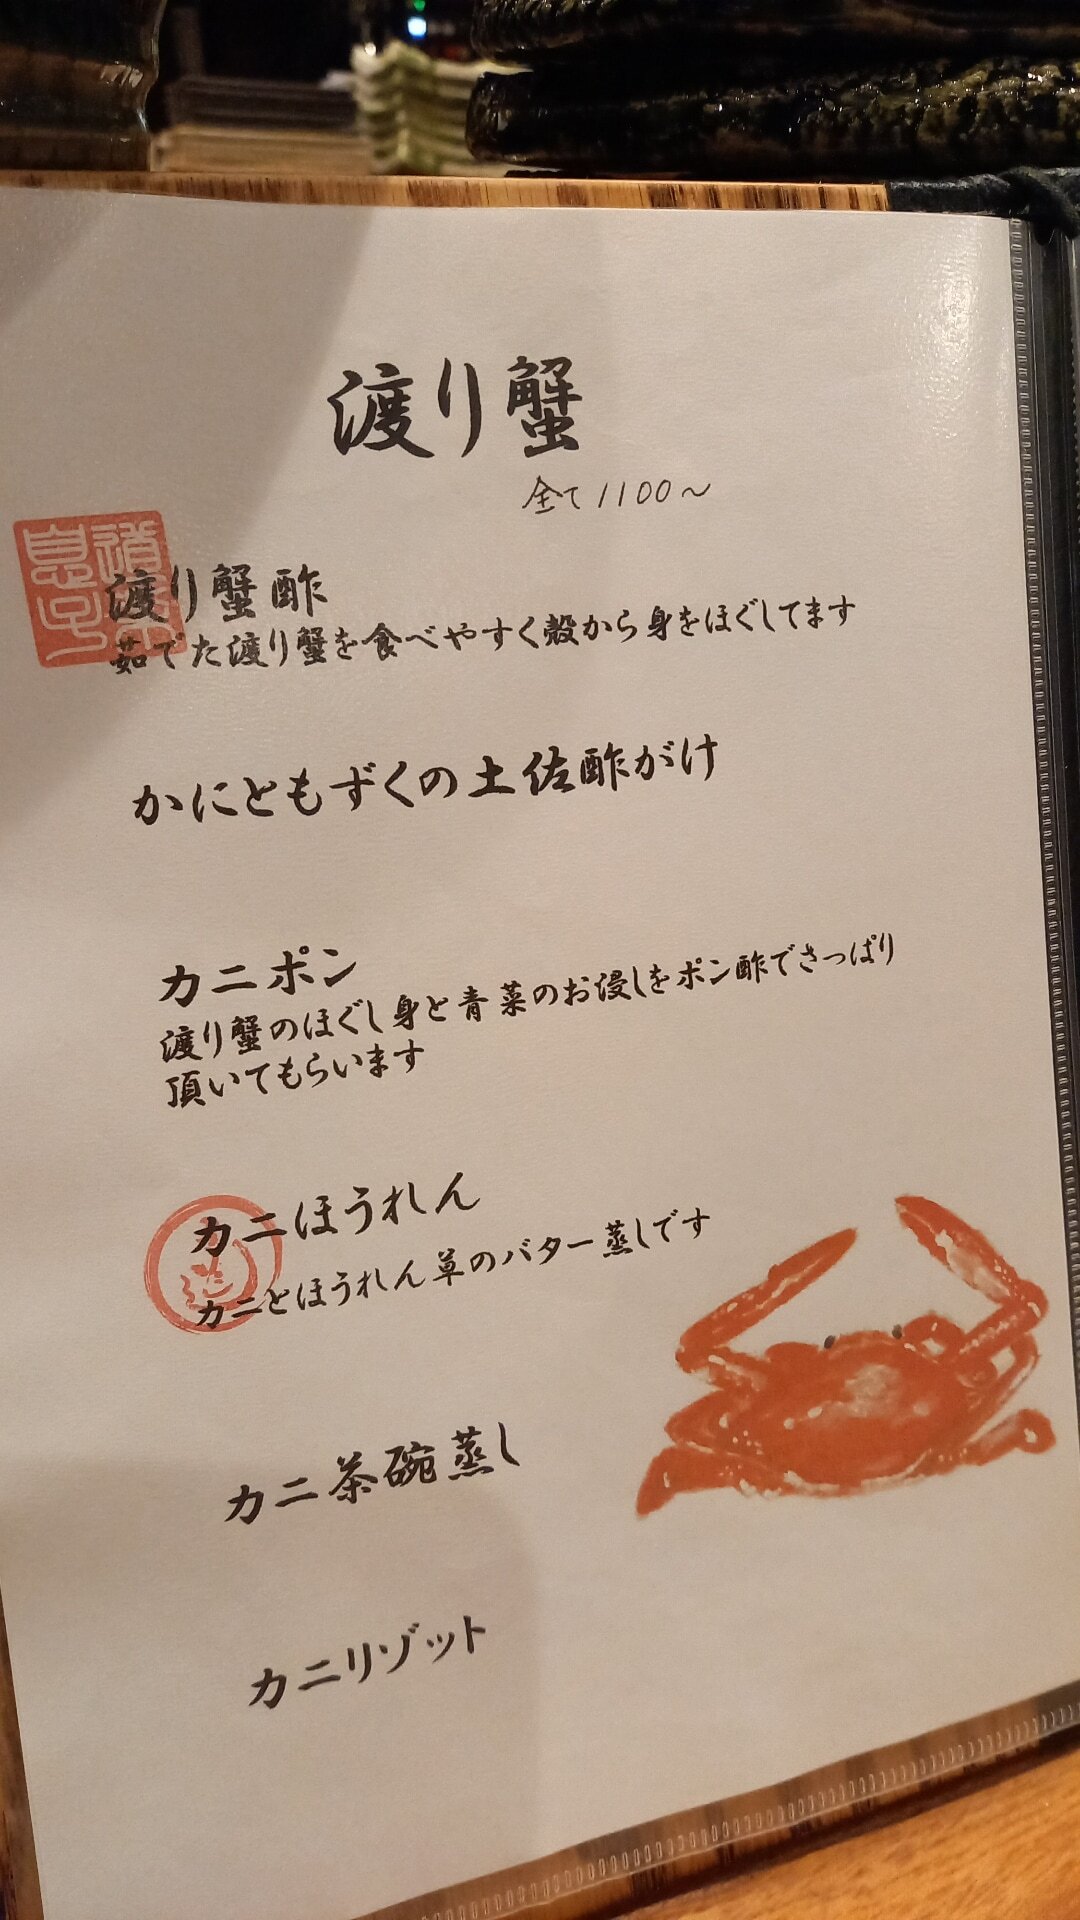 渡り蟹
全て1100〜
渡り蟹酢
茹でた渡り蟹を食べやすく殻から身をほぐしてます
かにともずくの土佐酢がけ
カニポン
渡り蟹のほぐし身と青菜のお浸しをポン酢でさっぱり
頂いてもらいます
カニほうれん
カニとほうれん草のバター蒸しです
カニ茶碗蒸し
カニリゾット